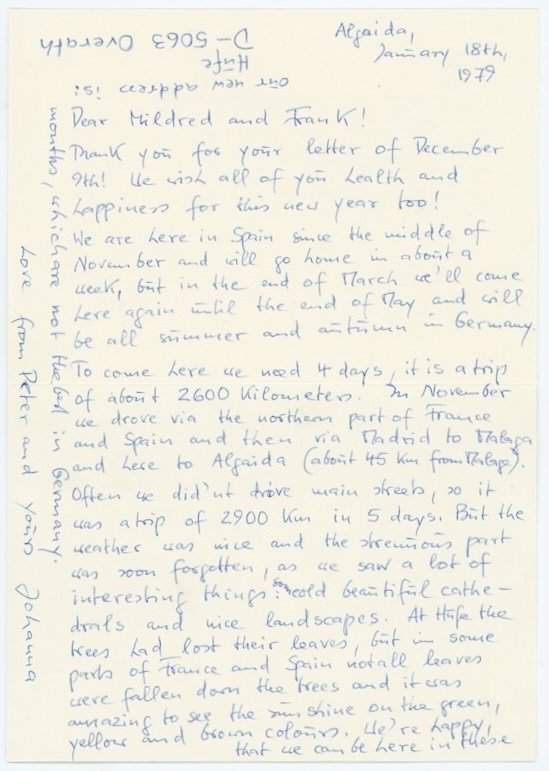 Algaida,
January 18th,
1979
our new address is:
Hüfe
D-5063 Overath
Dear Mildred and Frank!
Thank you for your letter of December
9th! We wish all of you health and
happiness for this new year too!
We are here in Spain since the middle of
November and will go home in about a
week, but in the end of March we'll come
here again until the end of May and will
be all summer and autumn in Germany.
To come here we need 4 days, it is a trip
of about 2600 Kilometers. In November
we drove via the northern part of France
and Spain and then via Madrid to Malaga
and here to Algaida (about 45 Km from Malaga).
Often we did'nt drove main streets, so it
was a trip of 2900 Km in 5 days. But the
weather was nice and the strenuous part
was soon forgotten, as we saw a lot of
interesting things: some old beautiful cathe-
drals and nice landscapes. At Hüfe the
trees had lost their leaves, but in some
parts of France and Spain not all leaves
were fallen dorn the trees and it was
amazing to see the sun shine on the green,
yellow and brown colours. We're happy,
that we can be here in these
months, which are not the best in Germany.
Love from Peter and yours Johanna